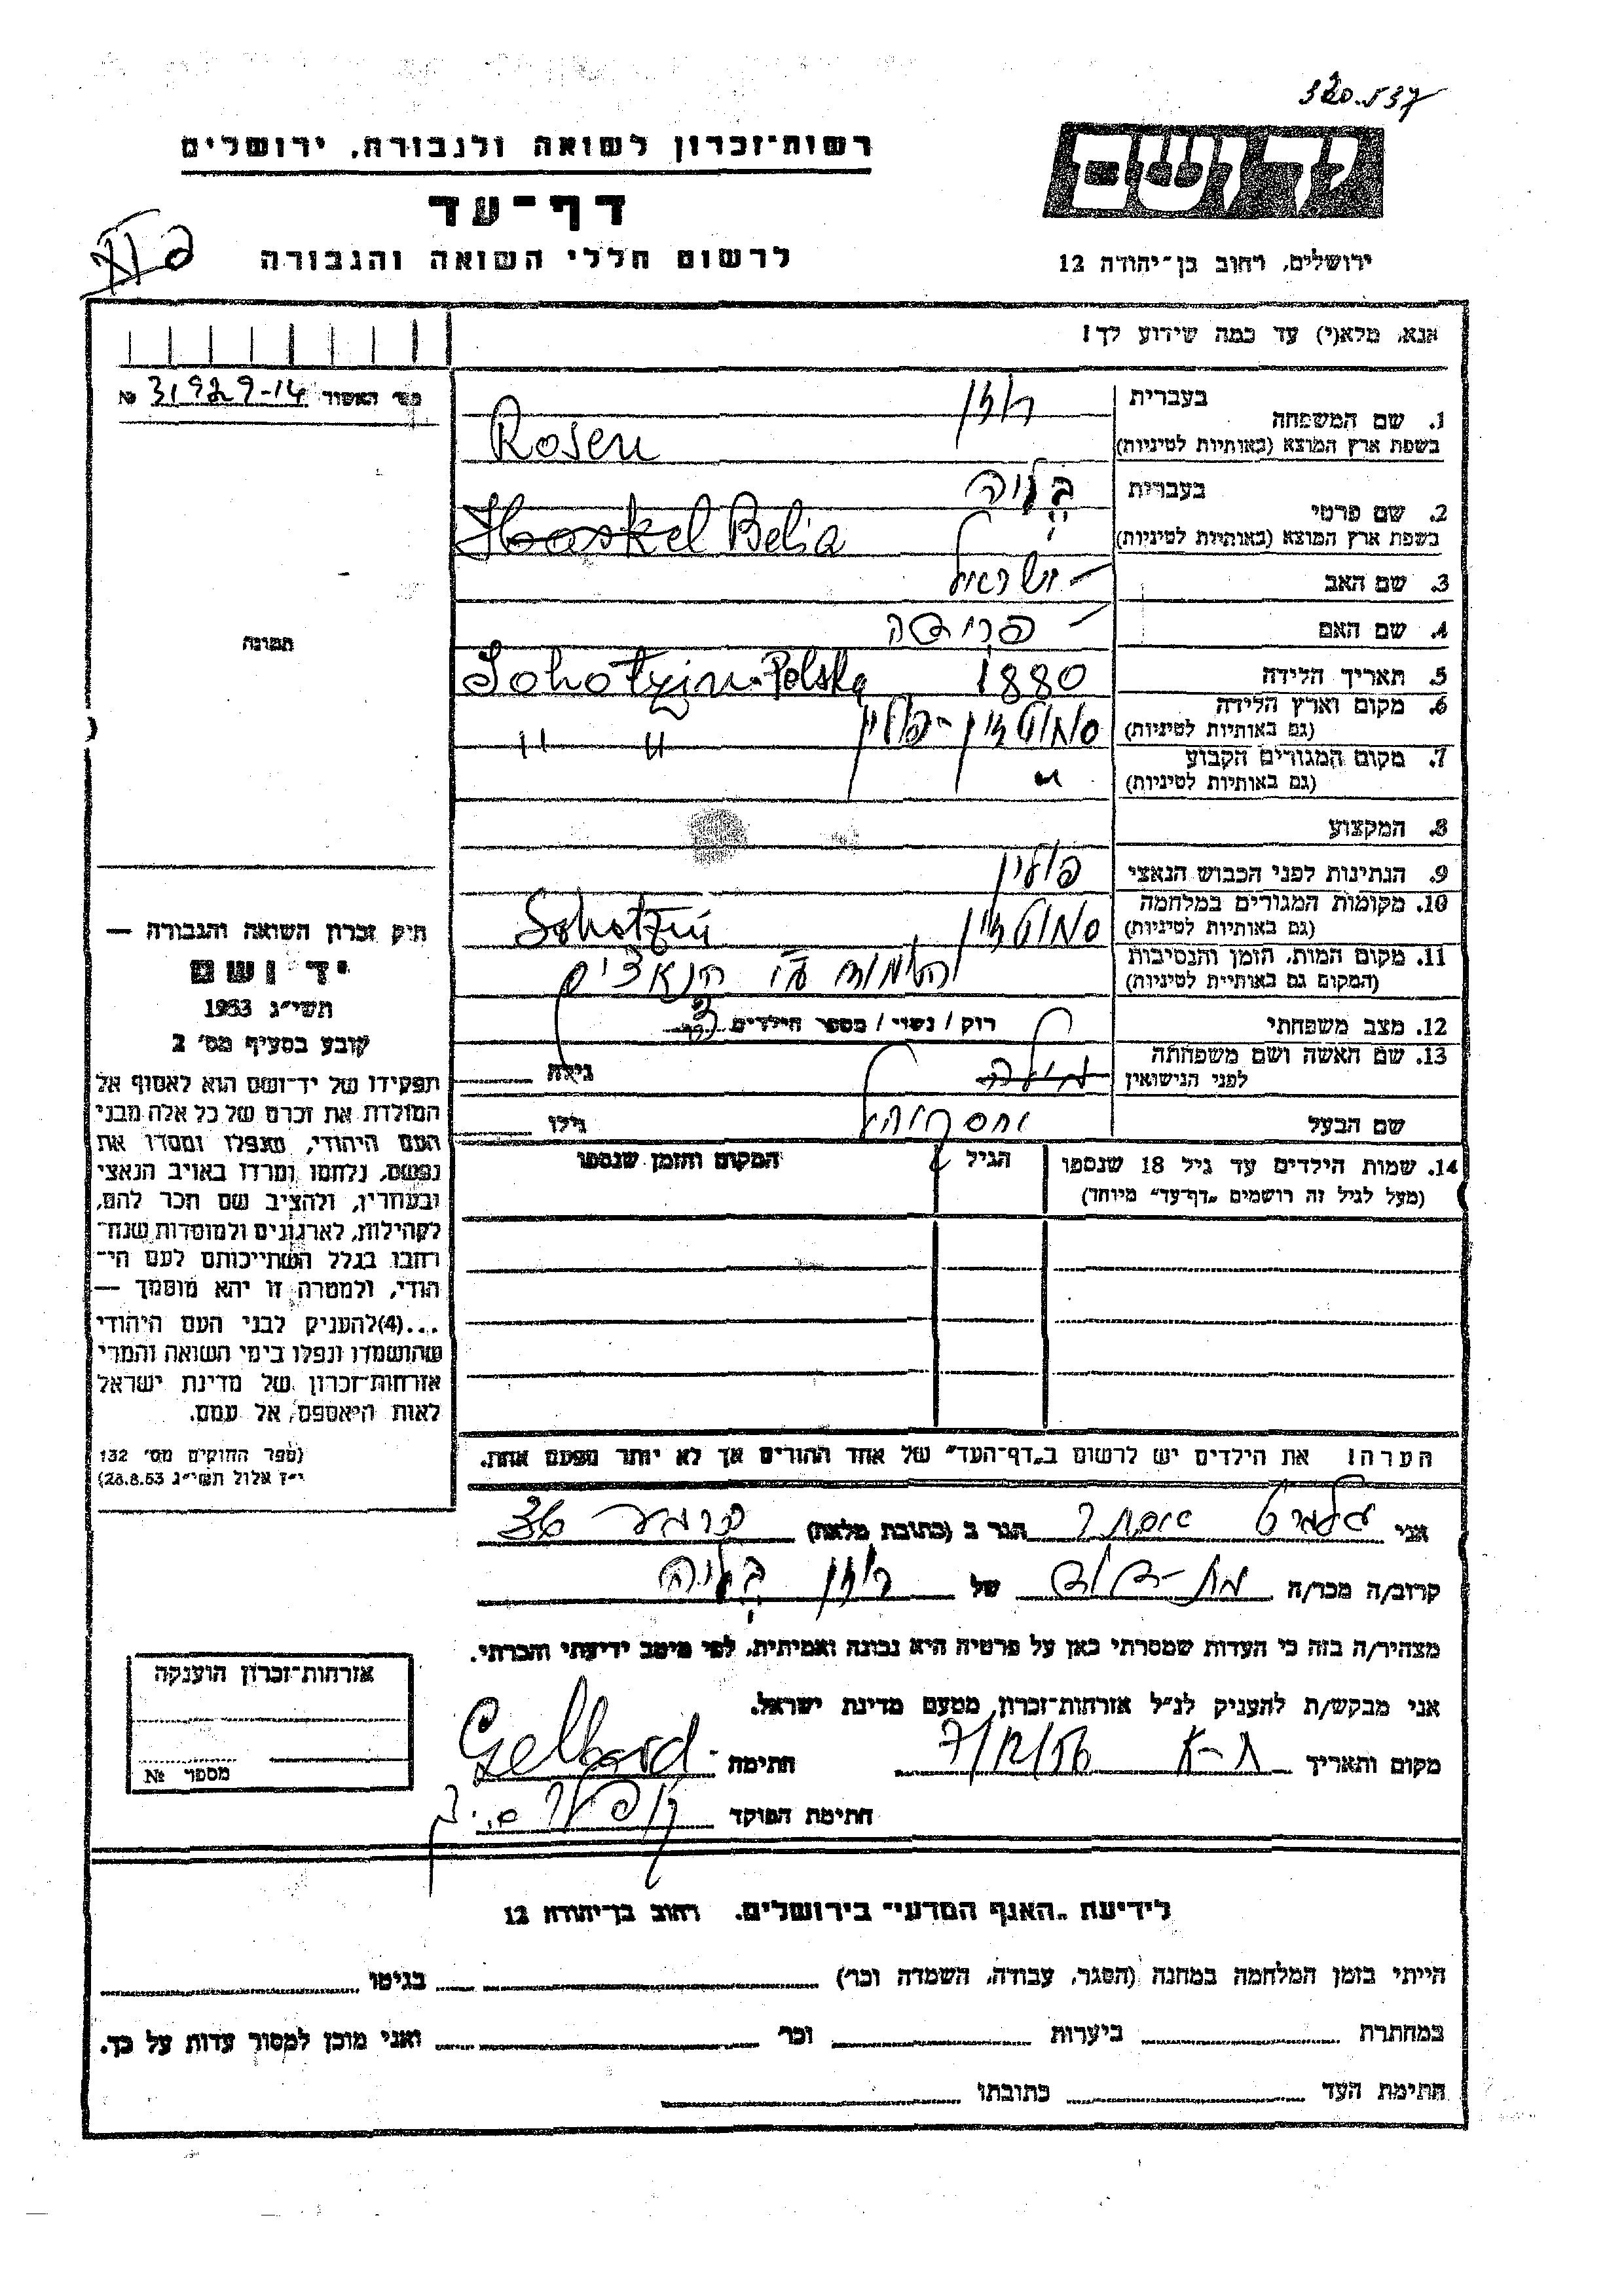 320.537
יד ושם
ירושלים, רחוב בן־יהודה 12
רשות־זכרון לשואה ולגבורה, ירושלים
דף־עד
לרשום חללי השואה והגבורה
אנא, מלא(י) עד כמה שידוע לך!
מס׳ האשור № 31929-14
תמונה
בעברית רוזן
1. שם המשפחה
בשפת ארץ המוצא (באותיות לטיניות) Rosen
בעברית
2. שם פרטי
בשפת ארץ המוצא (באותיות לטיניות) Belia
3. שם האב ישראל
4. שם האם
5. תאריך הלידה 1880
6. מקום וארץ הלידה
(גם באותיות לטיניות) Sohotzin-Polska
סוחוטצין-פולין
7. מקום המגורים הקבוע
(גם באותיות לטיניות) " "
8. המקצוע
9. הנתינות לפני הכבוש הנאצי פולין
10. מקומות המגורים במלחמה
(גם באותיות לטיניות) Sohotzin
11. מקום המות, הזמן והנסיבות
(המקום גם באותיות לטיניות) ע״י הנאצים
12. מצב משפחתי רוק / נשוי / מספר הילדים
13. שם האשה ושם משפחתה
לפני הנישואין גילה
שם הבעל יחזקאל גילו
14. שמות הילדים עד גיל 18 שנספו הגיל המקום והזמן שנספו
(מעל לגיל זה רושמים „דף־עד״ מיוחד)
הערה! את הילדים יש לרשום ב„דף־העד״ של אחד ההורים אך לא יותר מפעם אחת.
חוק זכרון השואה והגבורה —
יד ושם
תשי״ג 1953
קובע בסעיף מס׳ 2
תפקידו של יד־ושם הוא לאסוף אל
המולדת את זכרם של כל אלה מבני
העם היהודי, שנפלו ומסרו את
נפשם, נלחמו ומרדו באויב הנאצי
ובעוזריו, ולהציב שם וזכר להם,
לקהילות, לארגונים ולמוסדות שנח־
רבו בגלל השתייכותם לעם הי־
הודי, ולמטרה זו יהא מוסמך —
...(4) להעניק לבני העם היהודי
שהושמדו ונפלו בימי השואה והמרי
אזרחות־זכרון של מדינת ישראל
לאות היאספם אל עמם.
(ספר החוקים מס׳ 132
י״ז אלול תשי״ג 28.8.53)
אני אסתר הגר ב (כתובת מלאה)
קרוב/ה מכר/ה של רוזן
מצהיר/ה בזה כי העדות שמסרתי כאן על פרטיה היא נכונה ואמיתית, לפי מיטב ידיעתי והכרתי.
אני מבקש/ת להעניק לנ״ל אזרחות־זכרון, מטעם מדינת ישראל.
מקום ותאריך ת-א 7/12/56 חתימה Gelbard
חתימת הפוקד
אזרחות־זכרון הוענקה
מספר №
לידיעת „האגף המדעי״ בירושלים. רחוב בן־יהודה 12
הייתי בזמן המלחמה במחנה (הסגר, עבודה, השמדה וכו׳) בגיטו
במחתרת ביערות וכו׳ ואני מוכן למסור עדות על כך.
חתימת העד כתובתו